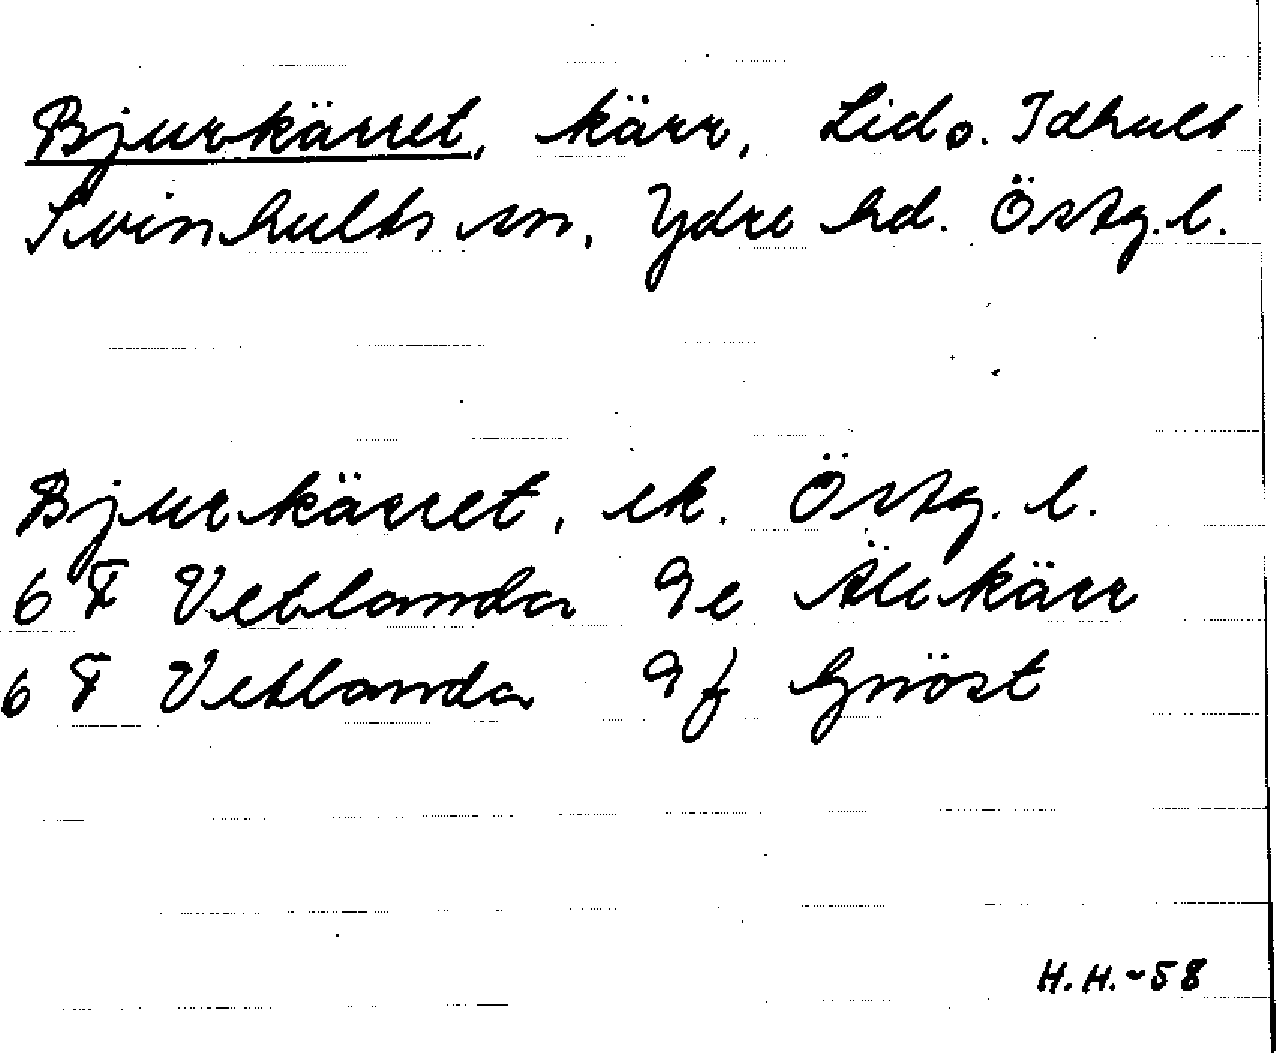 Bjurkärret, kärr, Lid o. Idhult
Svinhults sn, Ydre hd. Östg. l.
Bjurkärret, ek. Östg. l.
6 F Vetlanda 9e Älekärr
6 F Vetlanda 9f Gnöst
H.H.-58